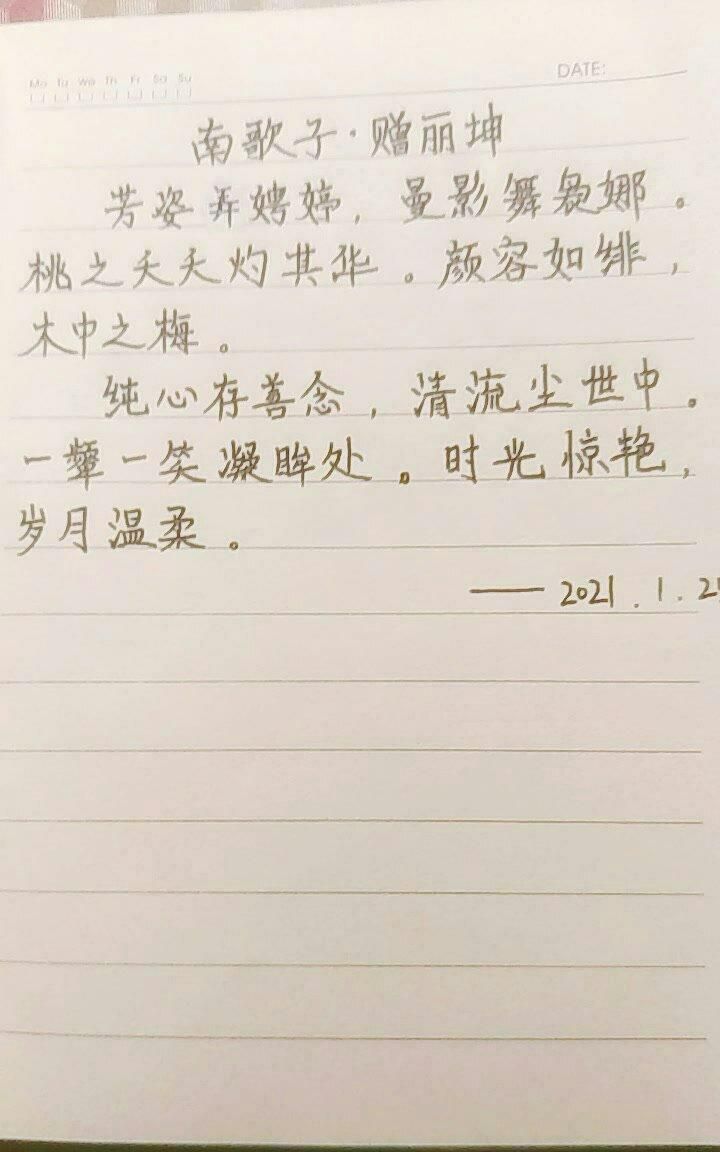 Mo Tu We Th Fr Sa Su
DATE:
南歌子·赠丽坤
芳姿弄娉婷，曼影舞袅娜。
桃之夭夭灼其华。颜容如绯，
木中之梅。
纯心存善念，清流尘世中。
一颦一笑凝眸处。时光惊艳，
岁月温柔。
——2021.1.2